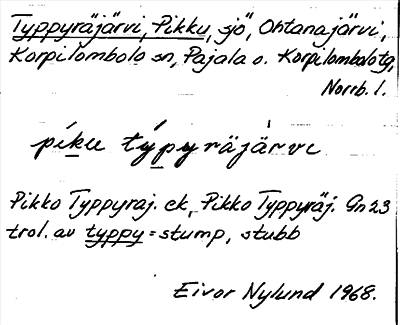 Typpyräjärvi, Pikku, sjö, Ohtanajärvi,
Korpilombolo sn, Pajala o. Korpilombolo tg,
Norrb. l.
pi̍ku ty̍pyräjà̍rvi
Pikko Typpyraj. ek, Pikko Typpyräj. Gn 23
trol. av typpy = stump, stubb
Eivor Nylund 1968.